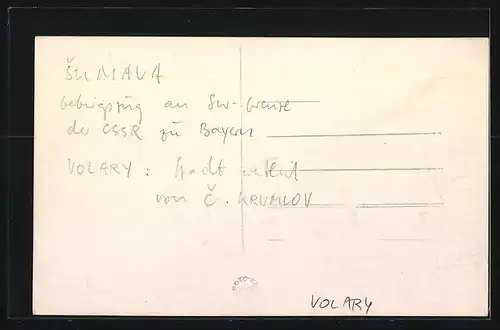 ŠUMAVA
Gebirgszug an SW-Grenze
der CSSR zu Bayern
VOLARY : Stadt westlich
von Č. KRUMLOV
VOLARY